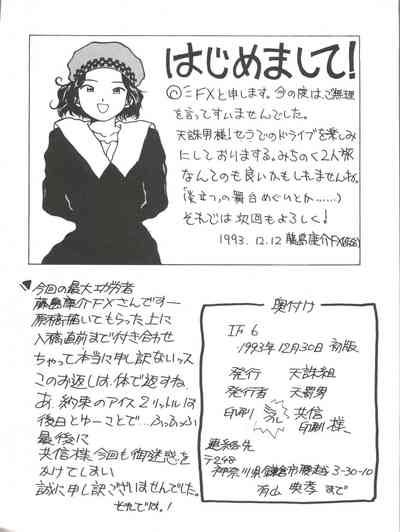 はじめまして!
FXと申します。今の度はご無理
を言ってすいませんでした。
天誅男様!セラでのドライブを楽しみ
にしておりまする。みちのく2人旅
なんてのも良いかもしれませんね。
の舞台めぐりとか……)
それでは次回もよろしく!
1993.12.12 藤島庸介FX
今回の最大功労者
藤島庸介FXさんですー
原稿描いてもらった上に
入稿直前まで付き合わせ
ちゃって本当に申し訳ないっス
このお返しは、体で返すね
あ、約束のアイス2リットルは
後日とゆーことで…ふふっふっ
最後に
共信様、今回も御迷惑を
かけてしまい
誠に申し訳ございませんでした。
それでは!
奥付け
IF 6
1993年12月30日 初版
発行 天誅組
発行者 天誅男
印刷 共信印刷 様
連絡先
〒248
神奈川県鎌倉市腰越3-30-10
まで